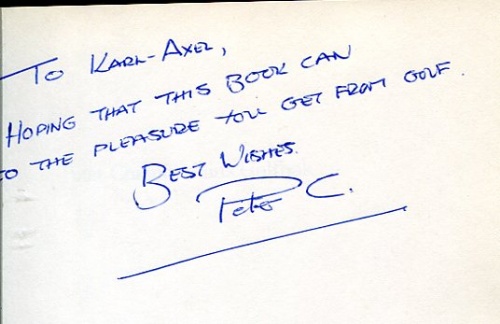 To Karl-Axel,
Hoping that this Book can
to the pleasure you get from golf.
Best Wishes.
Peter C.